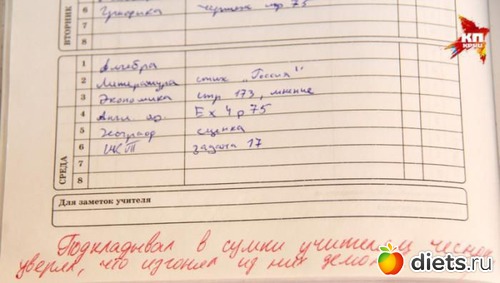 ВТОРНИК
6 чертеж стр 75
7
8
КП
КРИМ
СРЕДА
1 Алгебра
2 Литература стих "Россия"
3 Экономика стр 173, мнение
4 Англ яз. Ex 4 p 75
5 сценка
6 задача 17
7
8
Для заметок учителя
Подкладывал в сумки учителям чеснок
уверял, что изгонял из них демо
diets.ru